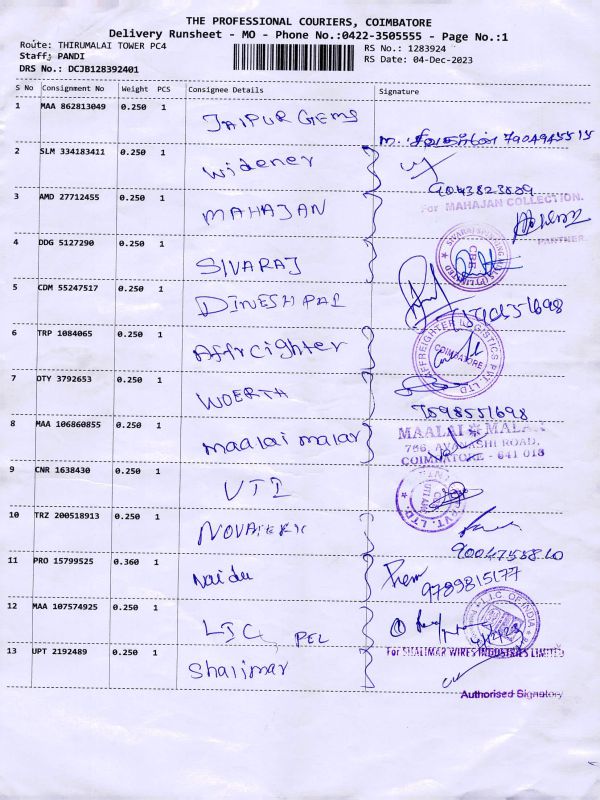 THE PROFESSIONAL COURIERS, COIMBATORE
Delivery Runsheet - MO - Phone No.:0422-3505555 - Page No.:1
Route: THIRUMALAI TOWER PC4
RS No.: 1283924
Staff: PANDI
RS Date: 04-Dec-2023
DRS No.: DCJB128392401
S No Consignment No Weight PCS Consignee Details Signature
1 MAA 862813049 0.250 1 JAIPUR GEMS
7904945515
2 SLM 334183411 0.250 1 Widener
9043823889
3 AMD 27712455 0.250 1 MAHAJAN
For MAHAJAN COLLECTION.
PARTNER.
4 DDG 5127290 0.250 1 SIVARAJ
5 CDM 55247517 0.250 1 DINESH PAI
6 TRP 1084065 0.250 1 Affrcighter
AFFREIGHTER LOGISTICS PVT. LTD
COIMBATORE
7 DTY 3792653 0.250 1 WOERTH
7598551698
8 MAA 106860855 0.250 1 maalai malar
MAALAI MALAR
756, AVANASHI ROAD,
COIMBATORE - 641 018
9 CNR 1638430 0.250 1 UTI
10 TRZ 200518913 0.250 1
9004755840
11 PRO 15799525 0.360 1 Naidu
9789815177
12 MAA 107574925 0.250 1 LIC PEL
L.I.C. OF INDIA
13 UPT 2192489 0.250 1 Shalimar
For SHALIMAR WIRES INDUSTRIES LIMITED
Authorised Signatory